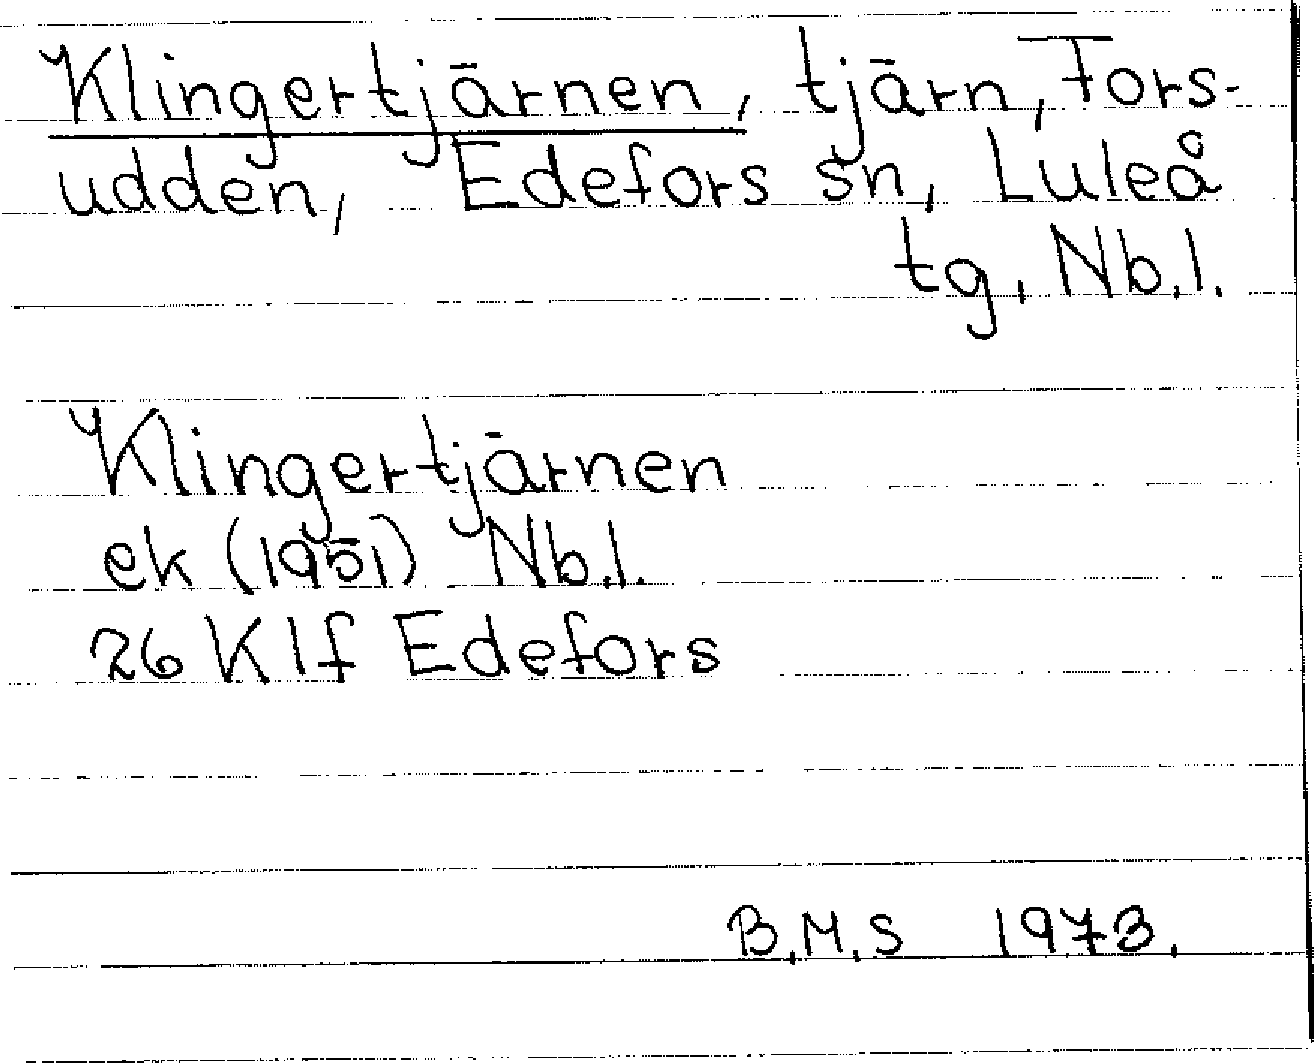 Klingertjärnen, tjärn, Fors-
udden, Edefors sn, Luleå
tg, Nb.l.
Klingertjärnen
ek (1951) Nb.l.
26 K l f Edefors
B.M.S 1973.